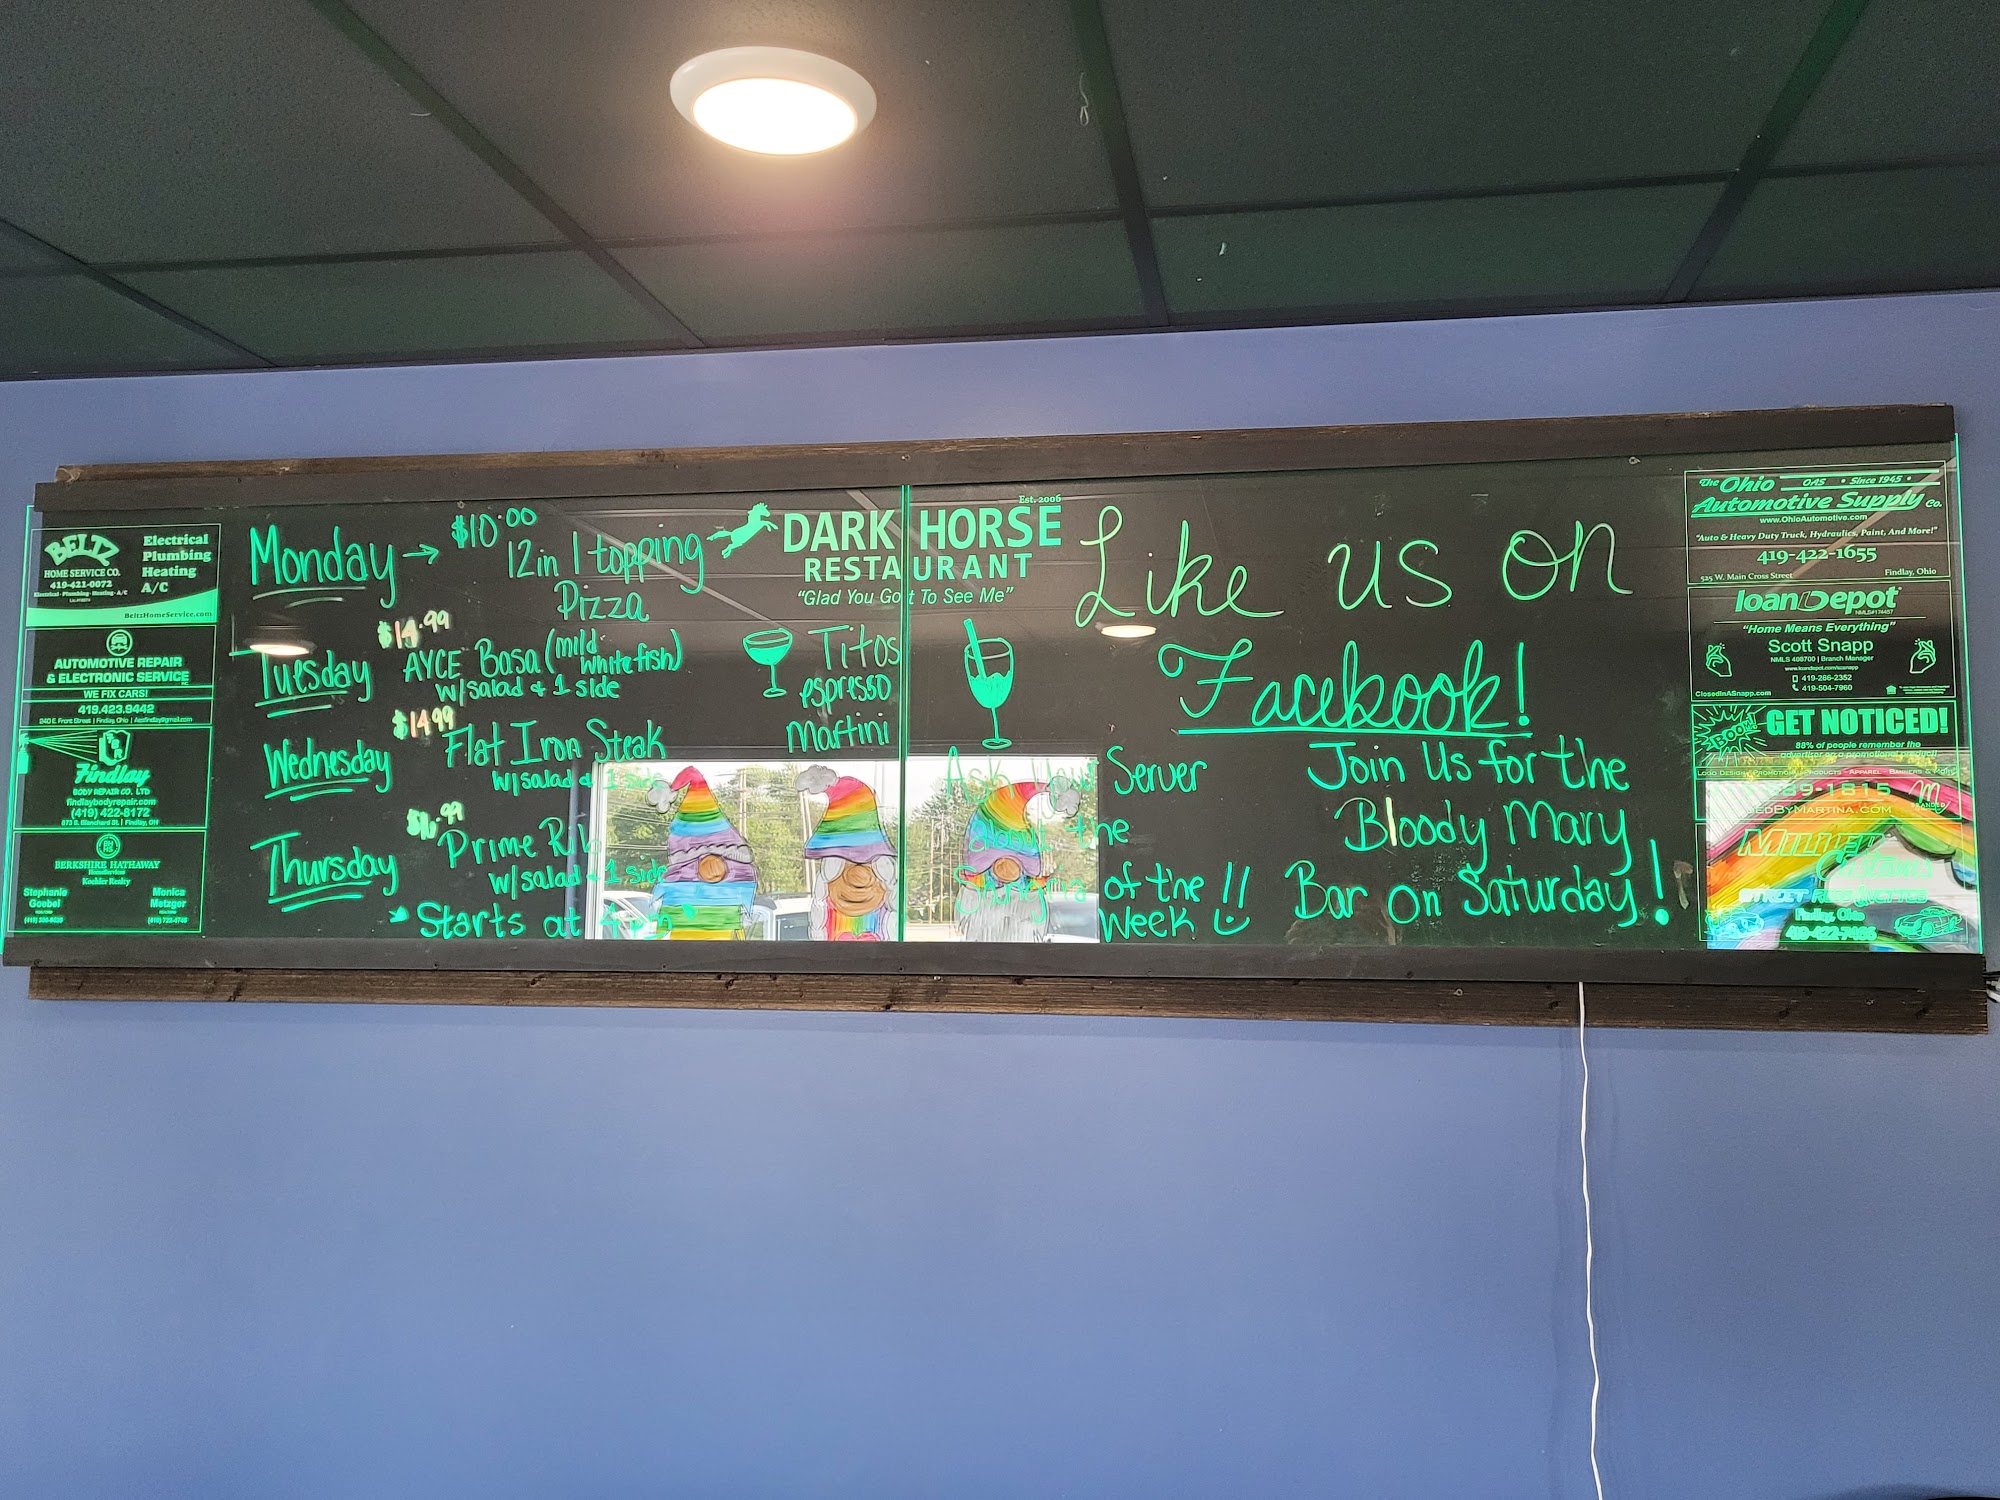 BELTZ
HOME SERVICE CO.
419-421-0072
Electrical · Plumbing · Heating · A/C
Electrical
Plumbing
Heating
A/C
BeltzHomeService.com
AUTOMOTIVE REPAIR
& ELECTRONIC SERVICE
WE FIX CARS!
419.423.9442
240 E. Front Street | Findlay, Ohio | Aesfindlay@gmail.com
Findlay
BODY REPAIR CO. LTD
findlaybodyrepair.com
(419) 422-8172
873 S. Blanchard St. | Findlay, OH
BERKSHIRE HATHAWAY
HomeServices
Koehler Realty
Stephanie
Goebel
Monica
Metzger
Monday → $10.00
12in 1 topping
Pizza
Tuesday
AYCE Basa (mild
white fish)
w/salad & 1 side
Wednesday $14.99
Flat Iron Steak
w/salad & 1 side
Thursday
Prime Rib
w/salad & 1 side
Starts at 4pm
Est. 2006
DARK HORSE
RESTAURANT
"Glad You Got To See Me"
Titos
espresso
Martini
Ask Your Server
about the
of the
Week !!
Like us on
Facebook!
Join Us for the
Bloody Mary
Bar on Saturday!
The Ohio OAS • Since 1945 •
Automotive Supply Co.
www.OhioAutomotive.com
"Auto & Heavy Duty Truck, Hydraulics, Paint, And More!"
419-422-1655
525 W. Main Cross Street Findlay, Ohio
loanDepot
NMLS#174457
"Home Means Everything"
Scott Snapp
NMLS 498700 | Branch Manager
419-266-2352
419-504-7960
ClosedInASnapp.com
BOOM!
GET NOTICED!
88% of people remember the
advertiser on a promotional product!
Logo Design · Promotional Products · Apparel · Banners & More
Findlay, Ohio